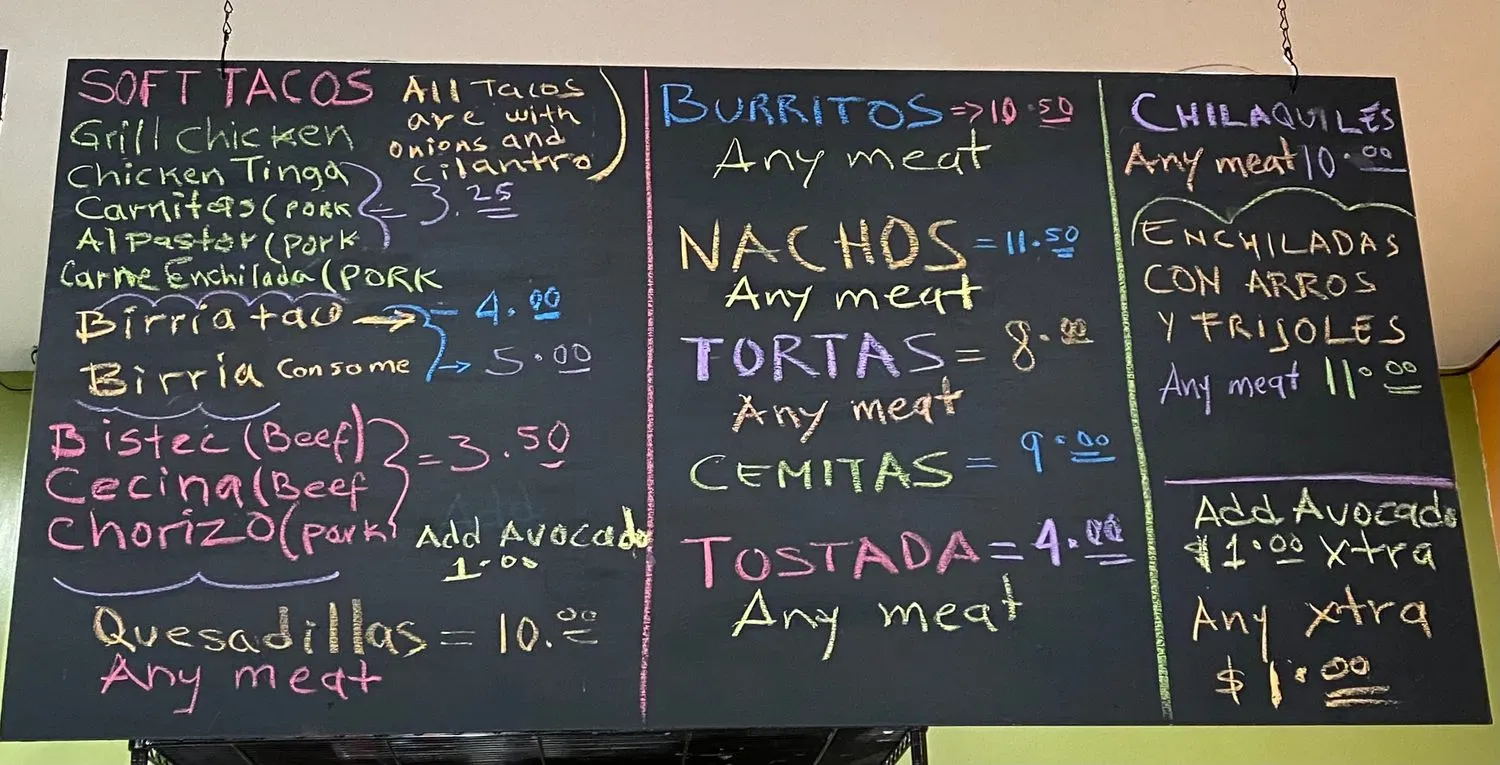 SOFT TACOS
All Tacos
are with
onions and
cilantro
Grill chicken
Chicken Tinga
Carnitas (PORK
Al pastor (pork
= 3.25
Carne Enchilada (PORK
Birria taco → 4.00
Birria Consome → 5.00
Bistec (Beef)
Cecina (Beef
Chorizo (pork
= 3.50
Add Avocado
1.00
Quesadillas = 10.00
Any meat
BURRITOS => 10.50
Any meat
NACHOS = 11.50
Any meat
TORTAS = 8.00
Any meat
CEMITAS = 9.00
TOSTADA = 4.00
Any meat
CHILAQUILES
Any meat 10.00
ENCHILADAS
CON ARROS
Y FRIJOLES
Any meat 11.00
Add Avocado
$1.00 xtra
Any xtra
$1.00